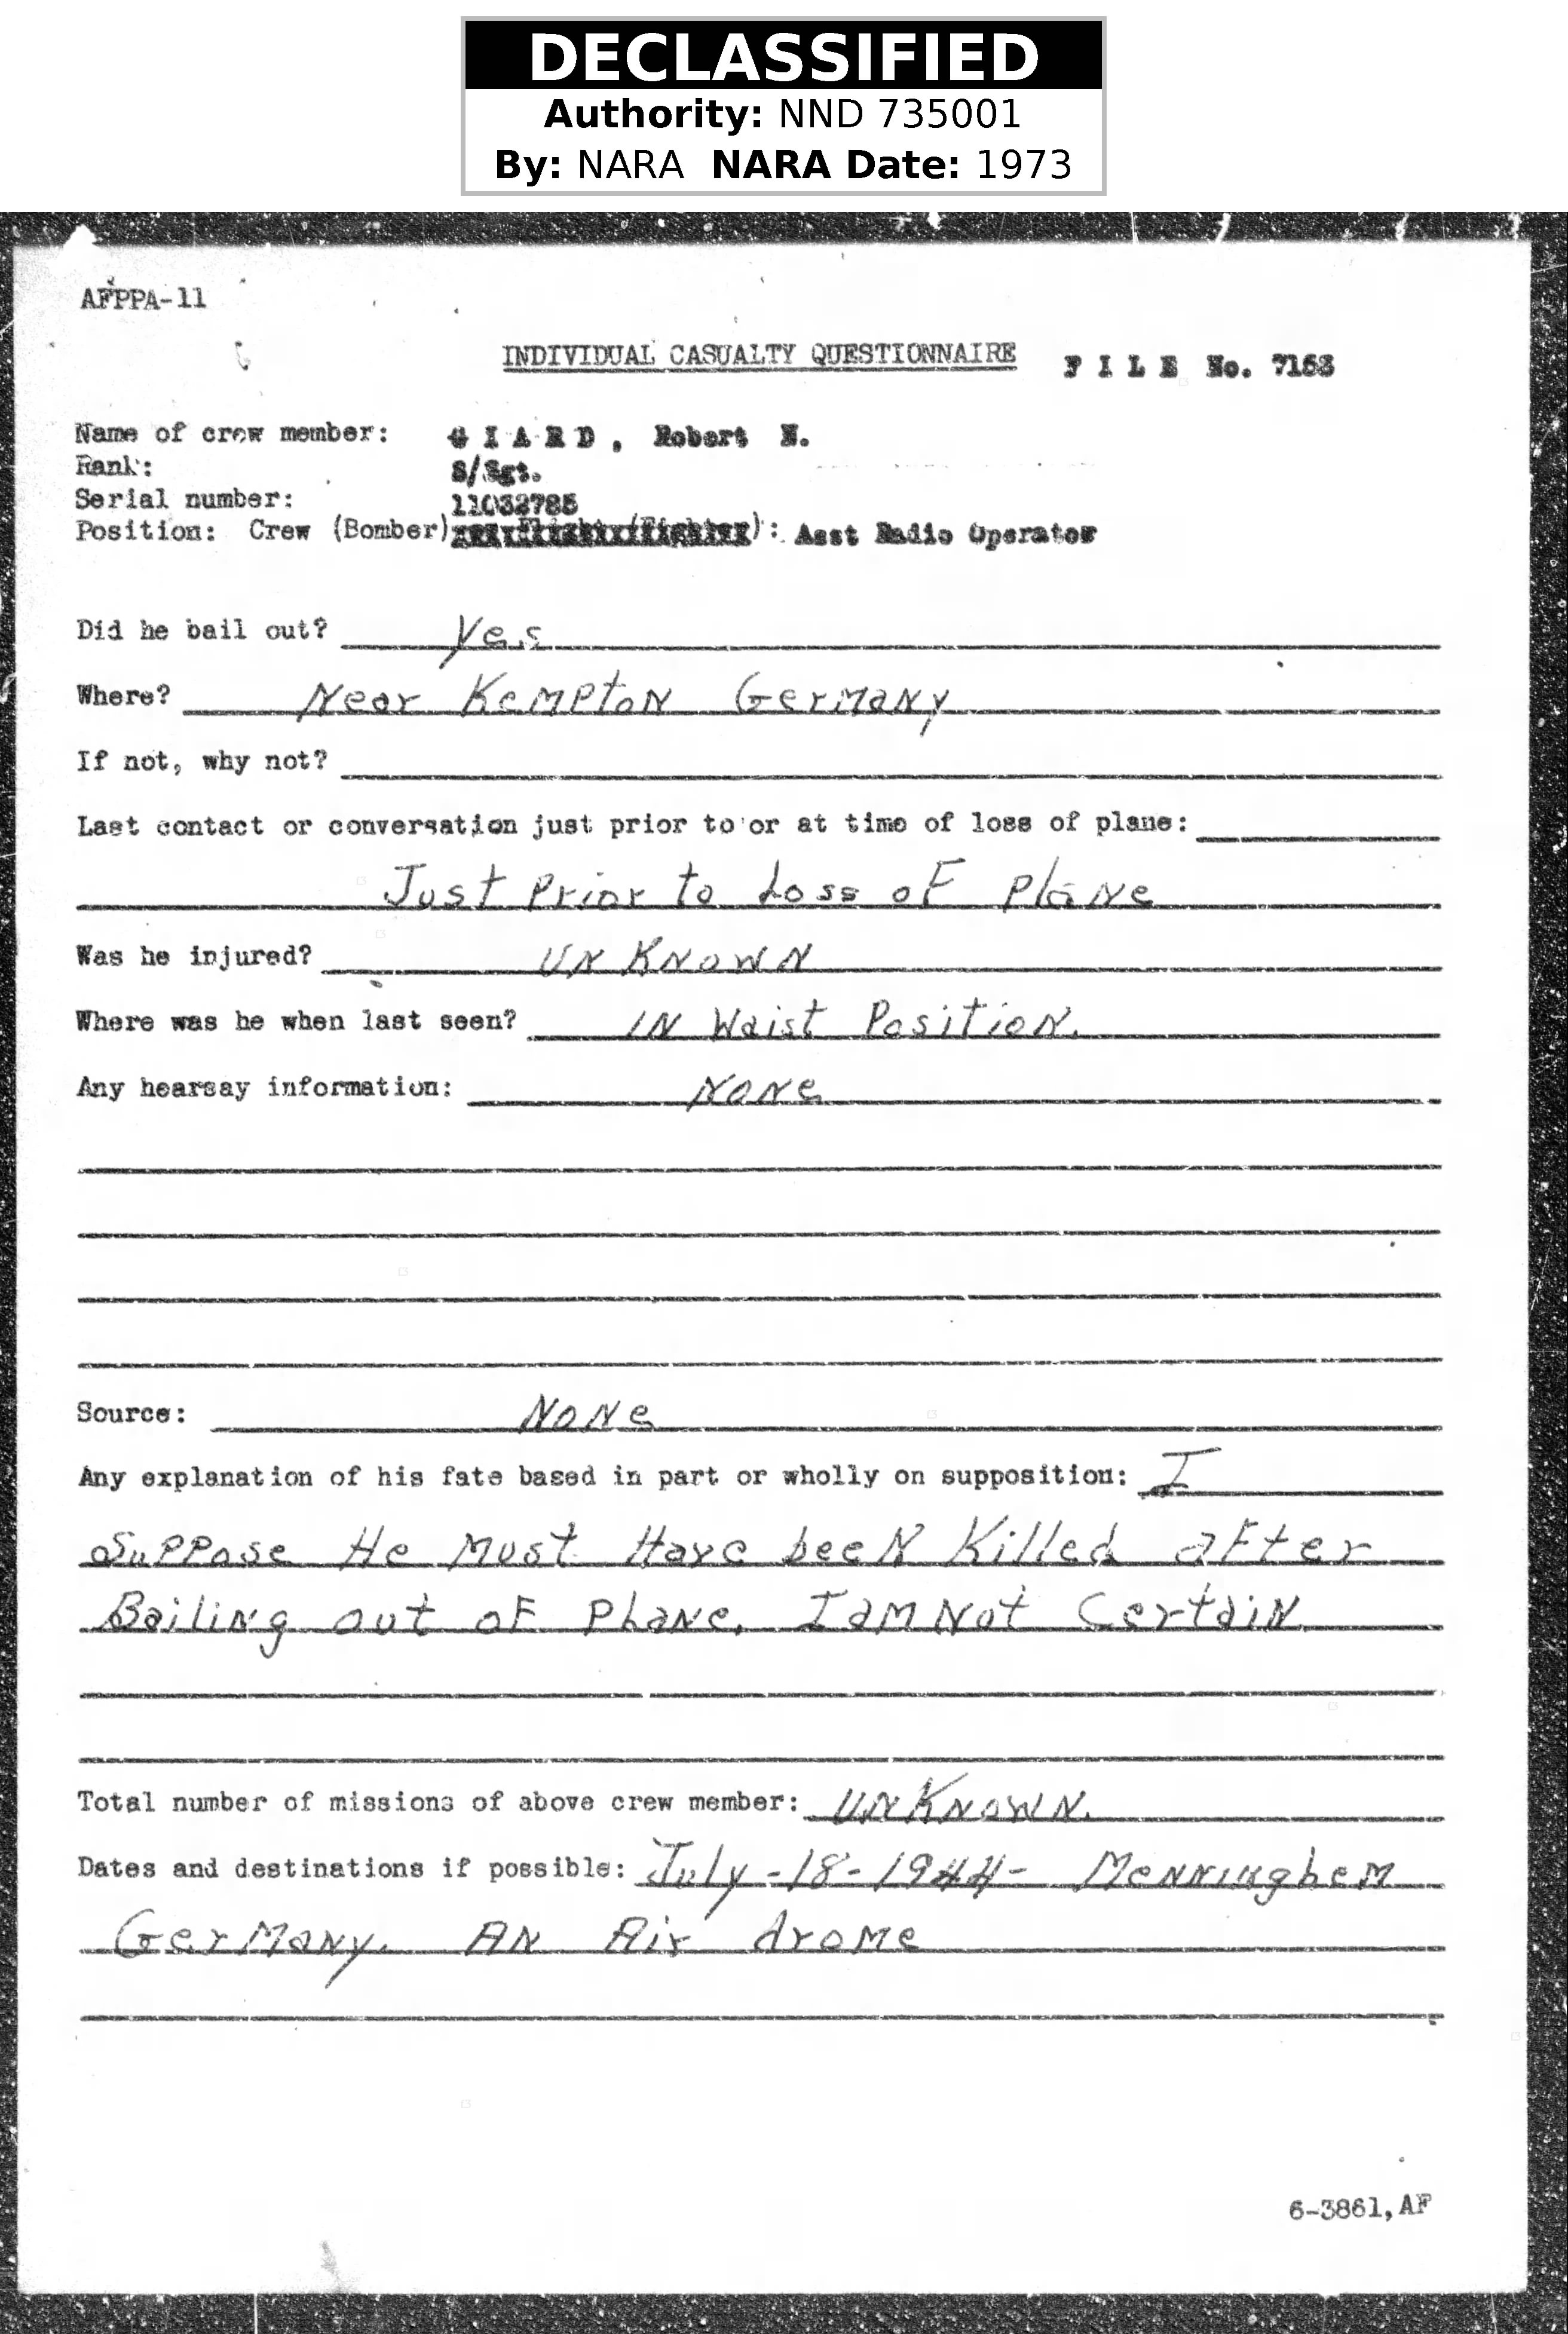 DECLASSIFIED
Authority: NND 735001
By: NARA NARA Date: 1973
AFPPA-11
INDIVIDUAL CASUALTY QUESTIONNAIRE FILE No. 7153
Name of crew member: GIARD, Robert N.
Rank: S/Sgt.
Serial number: 11032785
Position: Crew (Bomber) : Asst Radio Operator
Did he bail out? Yes
Where? Near Kempton Germany
If not, why not?
Last contact or conversation just prior to or at time of loss of plane:
Just Prior to Loss of Plane
Was he injured? UNKNOWN
Where was he when last seen? IN Waist Position.
Any hearsay information: None
Source: None
Any explanation of his fate based in part or wholly on supposition: I
Suppose He Must Have been Killed after
Bailing out of Plane. I am Not Certain.
Total number of missions of above crew member: UNKNOWN.
Dates and destinations if possible: July-18-1944- Menninghem
Germany. AN Air drome
6-3861,AF